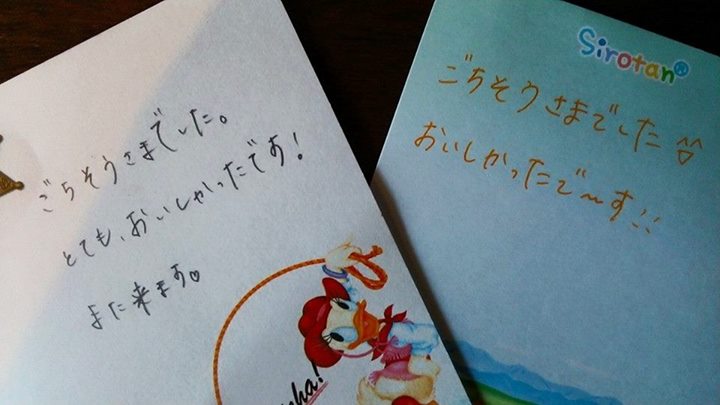 ごちそうさまでした。
とても、おいしかったです！
また来ます♡
Sirotan
ごちそうさまでした^^
おいしかったで〜す!!